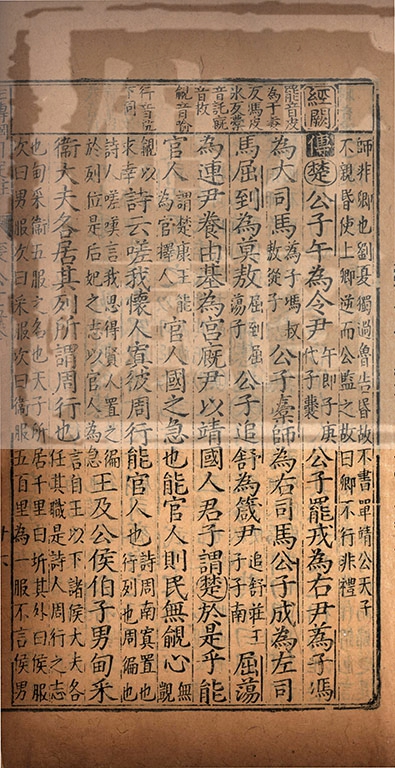 師非卿也劉夏獨過魯告昏故不書單靖公天子
不親昏使上卿逆而公監之故曰卿不行非禮
經闕
罷音皮
為于委
反馮皮
冰反橐
音託廐
覦音俞
行音行
下同
傳楚公子午為令尹午即子庚代子囊公子罷戎為右尹為子馮
為大司馬為子馮叔敖從子公子橐師為右司馬公子成為左司
馬屈到為莫敖屈到屈蕩子公子追舒為箴尹追舒莊王子子南屈蕩
為連尹養由基為宮廐尹以靖國人君子謂楚於是乎能
官人謂楚康王能為官擇人官人國之急也能官人則民無覦心無覬
覦以求幸詩云嗟我懷人寘彼周行能官人也詩周南寘置也行列也周徧也
詩人嗟嘆言我思得賢人置之徧於列位是后妃之志以官人為急王及公侯伯子男甸采
衞大夫各居其列所謂周行也言自王以下諸侯大夫各任其職是詩人周行之志
也甸采衞五服之名也天子所居千里曰圻其外曰侯服
次曰男服次曰采服次曰衞服五百里為一服不言侯男